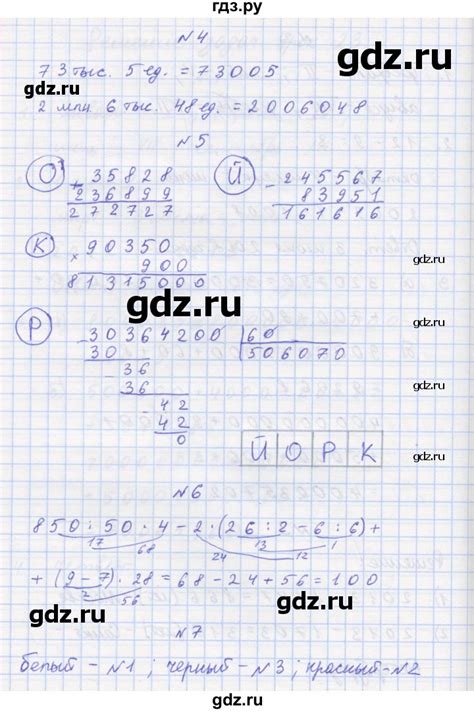 гдз.ру
№4
73 тыс. 5 ед. = 73005
2 млн. 6 тыс. 48 ед. = 2006048
gdz.ru
№5
О
+ 35828
236899
272727
Й
- 245567
83951
161616
К
× 90350
900
81315000
gdz.ru
Р
- 30364200 | 60
30
506070
- 36
36
- 42
42
0
gdz.ru
ЙОРК
№6
850 : 50 · 4 - 2 · (26 : 2 - 6 : 6) +
17
68
24
13
12
1
+ (9 - 7) · 28 = 68 - 24 + 56 = 100
2
56
gdz.ru
gdz.ru
№7
белый - №1 ; черный - №3 ; красный - №2
gdz.ru